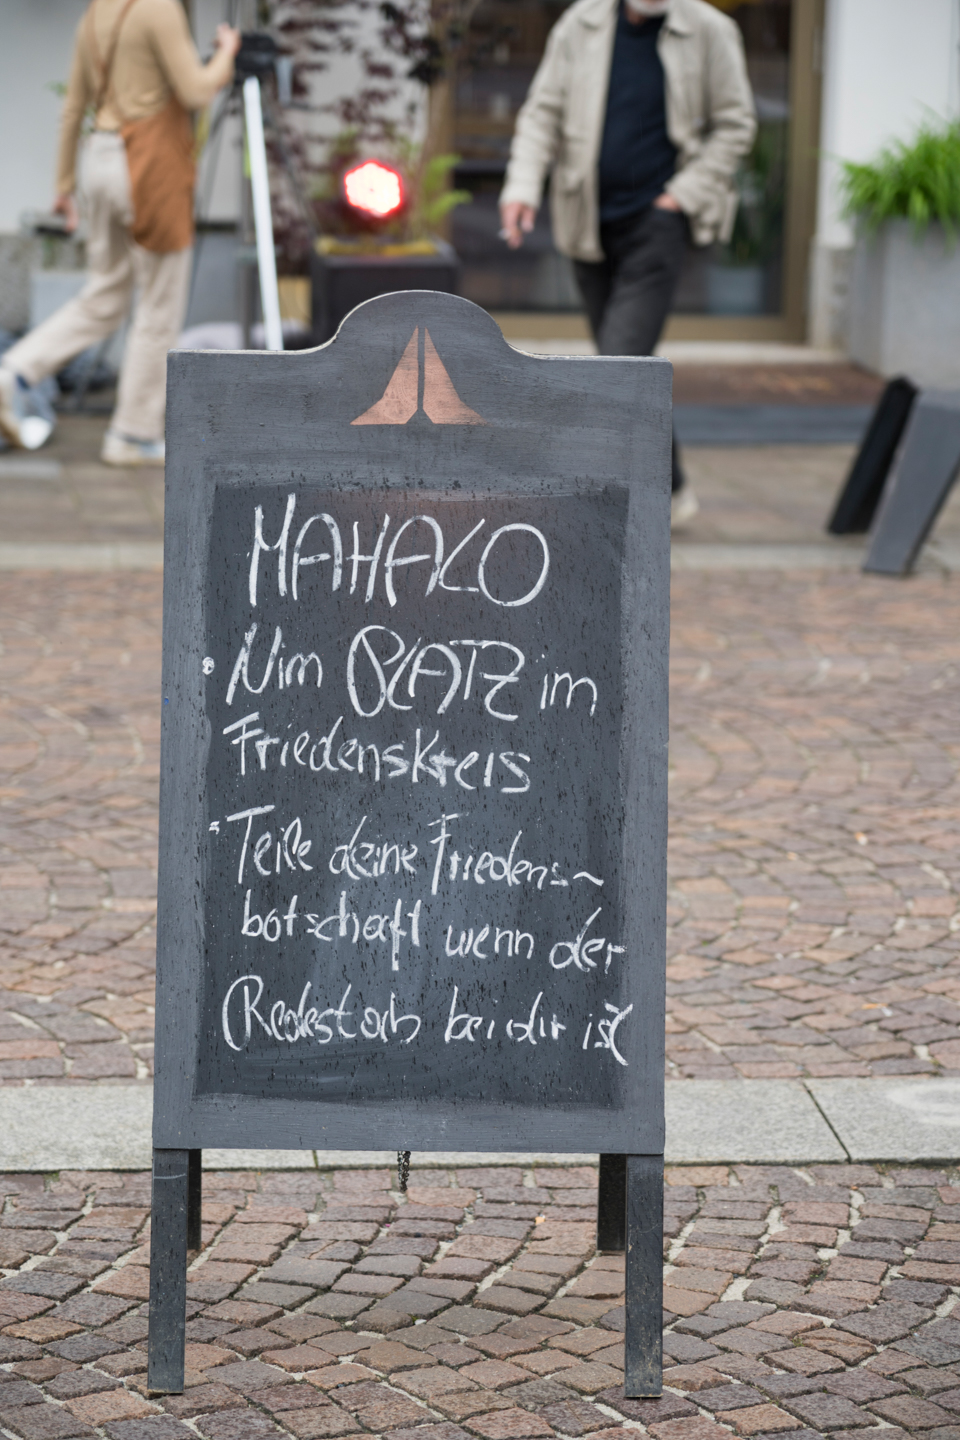 MAHALO
• Nim PLATZ im
Friedenskreis
• Teile deine Friedens~
botschaft wenn der
Redestab bei dir ist